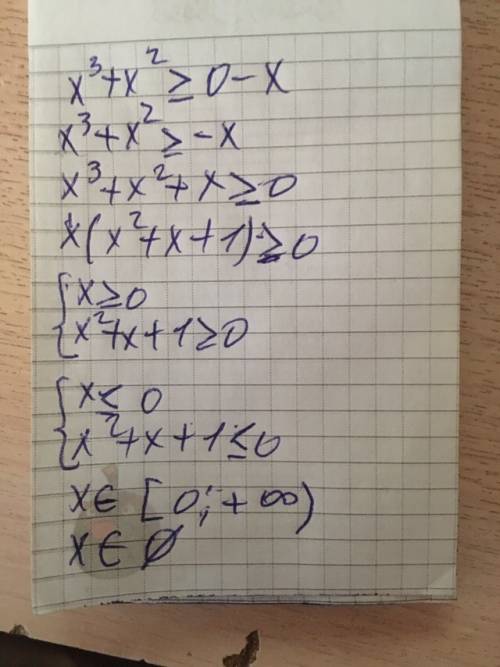 x³+x² ≥ 0-x
x³+x² ≥ -x
x³+x²+x ≥ 0
x(x²+x+1) ≥ 0
{x ≥ 0
{x²+x+1 ≥ 0
{x ≤ 0
{x²+x+1 ≤ 0
x ∈ [0; +∞)
x ∈ ∅